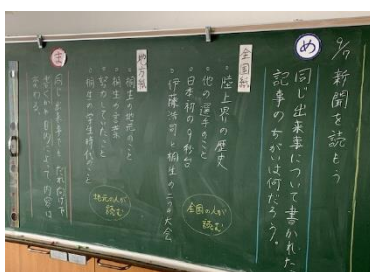 9/17 新聞を読もう
め
同じ出来事について書かれた
記事のちがいは何だろう。
全国紙
。陸上界の歴史
。他の選手のこと
。日本初の9秒台
。伊藤浩司と桐生の
大会
全国の人が
読む
地方紙
。桐生の地元のこと
。桐生の言葉
。努力してたこと
。桐生の学生時代のこと
地元の人が
読む
ま
同じ出来事でも、だれ向けで
によって、内容は
変わる。